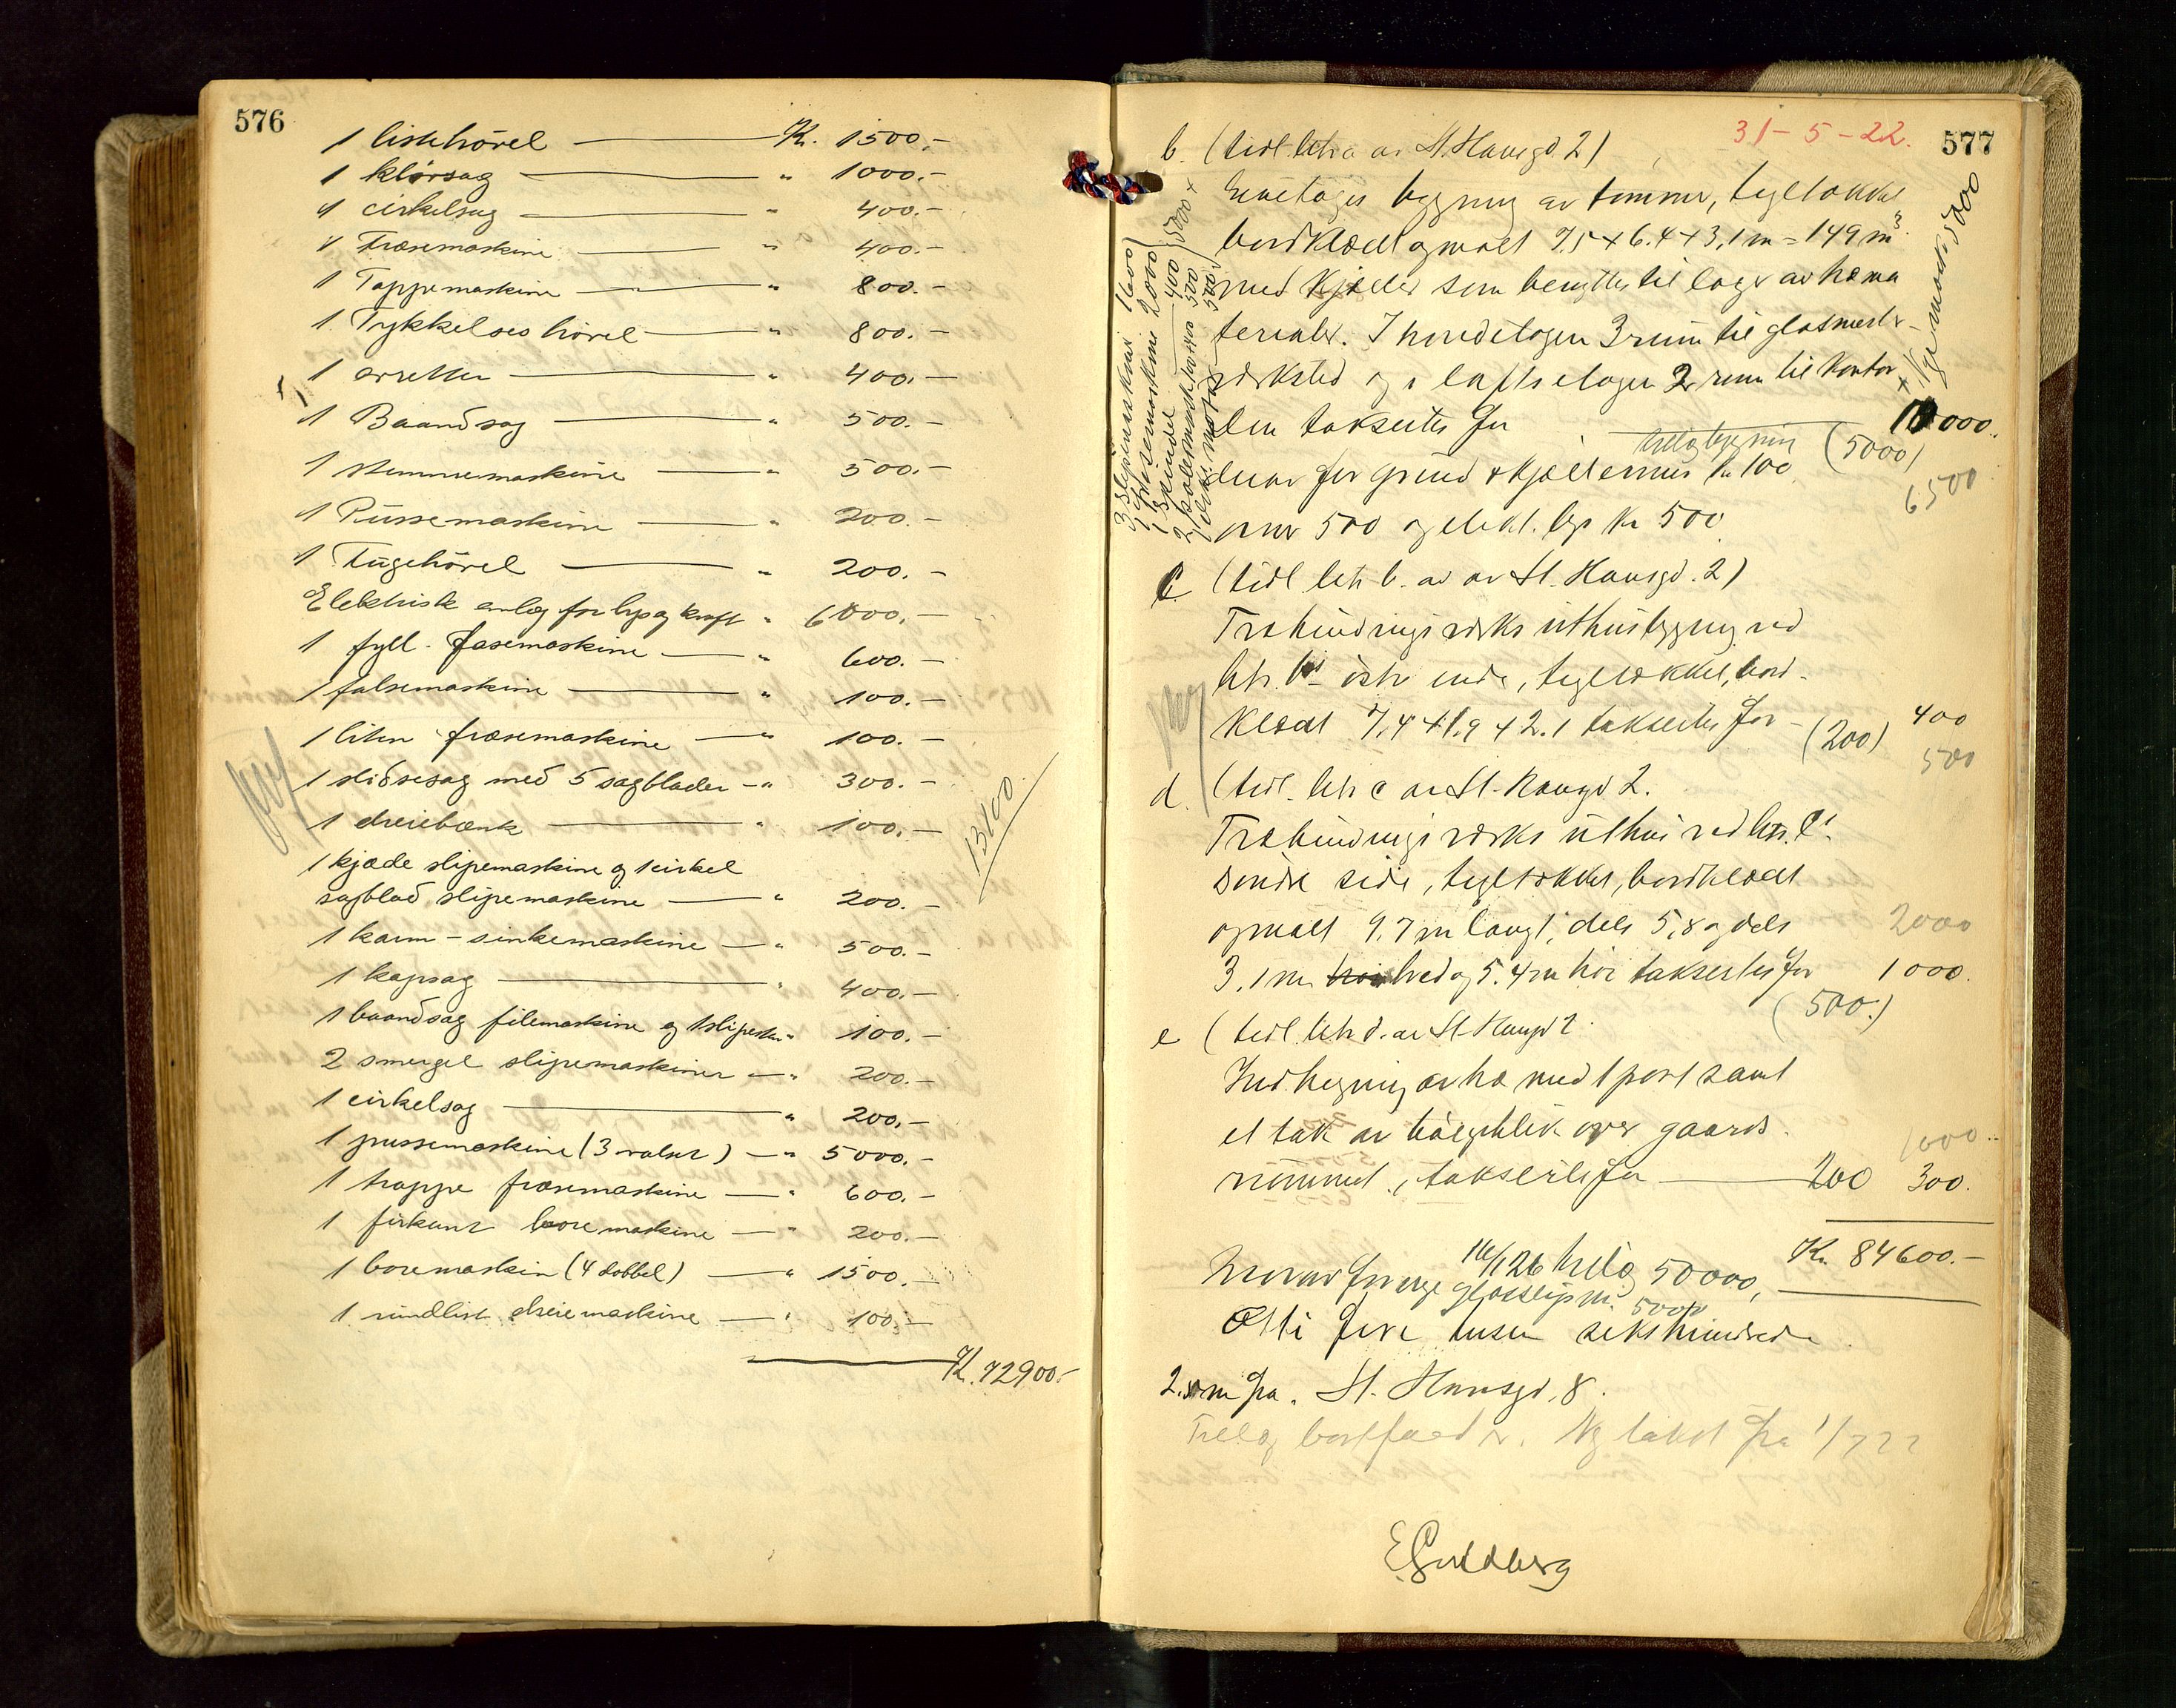 576
1 listehövel — Kr. 1500.-
1 klövsag — " 1000.-
1 cirkelsag — " 400.-
1 Fræsemaskine — " 400.-
1 Tappemaskine — " 800.-
1 Tykkelseshövel — " 800.-
1 avretter — " 400.-
1 Baandsag — " 500.-
1 stemmemaskine — " 500.-
1 Pussemaskine — " 200.-
1 Fugehövel — " 200.-
Elektrisk anlæg for lys og kraft " 6000.-
1 fyll. fasemaskine — " 600.-
1 falsemaskine — " 100.-
1 liten fræsemaskine — " 100.-
1 slidsesag med 5 sagblader — " 300.-
1 dreiebænk — " 100.-
1 kjæde slipemaskine og 1 cirkel
sagblad slipemaskine — " 200.-
1 karm-sinkemaskine — " 500.-
1 kapsag — " 400.-
1 baandsag filemaskine og 1 slipesten " 100.-
2 smergel slipemaskiner — " 200.-
1 cirkelsag — " 200.-
1 pussemaskine (3 valser) — " 5000.-
1 trappe fræsemaskine — " 600.-
1 firkant boremaskine — " 200.-
1 boremaskin (4 dobbel) — " 1500.-
1 rundlist dreiemaskine — " 100.-
Kr. 72900.-
13100
577
31-5-22.
b. (tidl. litra a av St. Hansgd. 2)
Enetages bygning av tømmer, tegltækket
bordklædt og malt 7.5 + 6.4 + 3,1 m = 149 m³
med kjælder som benyttes til lager av træma
terialer. I hovedetagen 3 rum til glasmester
verksted og i loftsetagen 2 rum til kontor
Den takseres for 10000.
(5000)
6500
derav for grund & kjældermur Kr 100
500 og elekt. lys Kr 500
3 slipemaskiner 1600
1 skindel 400
c. (tidl. litr. b. av St. Hansgd. 2)
Træbindingsverks uthusbygning ved
litr. b's östre ende, tegltækket, bord-
klædt 7.4 + 1.9 + 2.1 takseres for — (200) 400
500
d. (tidl. litr c av St. Hansgd 2.
Træbindingsverks uthus ved litr. c's
söndre side, tegltækket, bordklædt
og malt 9.7 m langt, dels 5,8 og dels 2000
3.1 m bred og 5.4 m höi takseres for 1000.
(500.)
e (tidl. litr d. av St. Hansgd 2.
Indhegning av træ med 1 port samt
et tak av bölgeblik over gaards- 1000
rummet, takseres for — 200 300.
Kr. 84600.-
50000,
5000
Otti fire tusen sekshundrede
2. St. Hansgd. 8.
Tillæg bortfaldt. Ny takst fra 1/7 22
E Guldberg